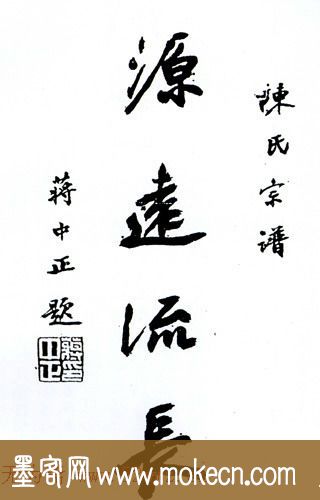 陳氏宗谱
源遠流長
蔣中正題
墨客网_www.mokecn.com